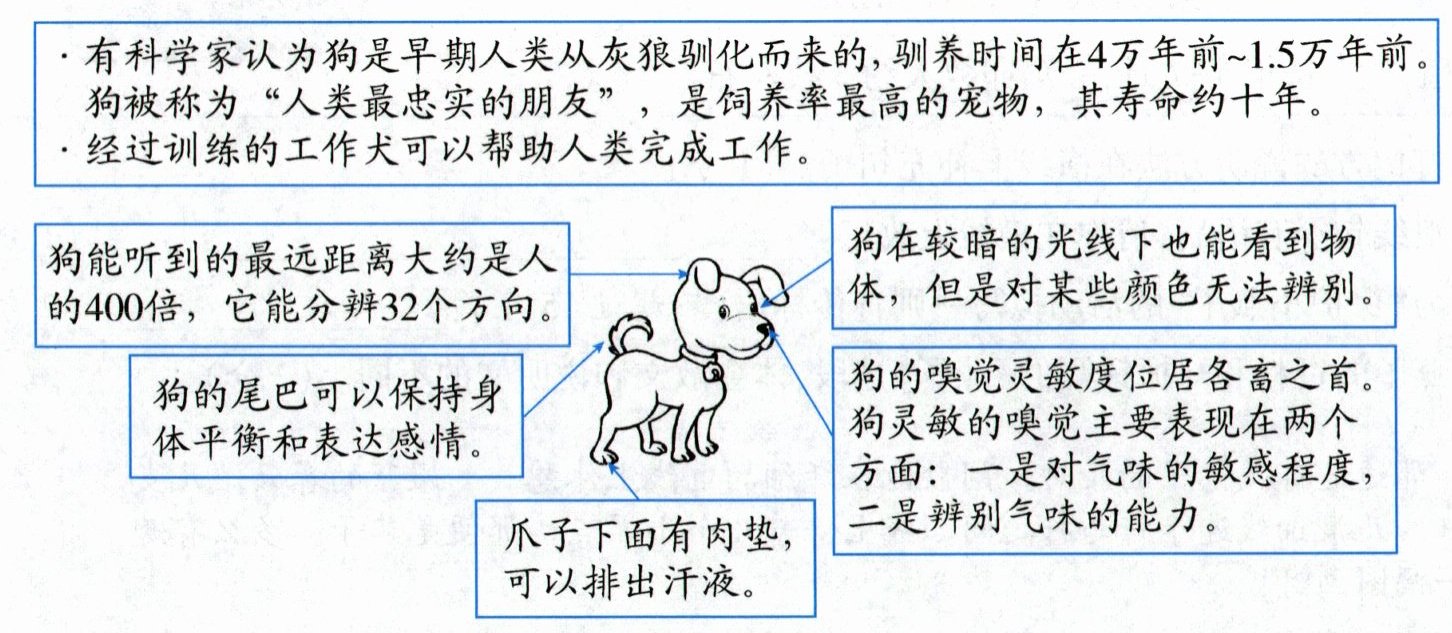 · 有科学家认为狗是早期人类从灰狼驯化而来的，驯养时间在4万年前~1.5万年前。
狗被称为“人类最忠实的朋友”，是饲养率最高的宠物，其寿命约十年。
· 经过训练的工作犬可以帮助人类完成工作。
狗能听到的最远距离大约是人
的400倍，它能分辨32个方向。
狗在较暗的光线下也能看到物
体，但是对某些颜色无法辨别。
狗的尾巴可以保持身
体平衡和表达感情。
狗的嗅觉灵敏度位居各畜之首。
狗灵敏的嗅觉主要表现在两个
方面：一是对气味的敏感程度，
二是辨别气味的能力。
爪子下面有肉垫，
可以排出汗液。